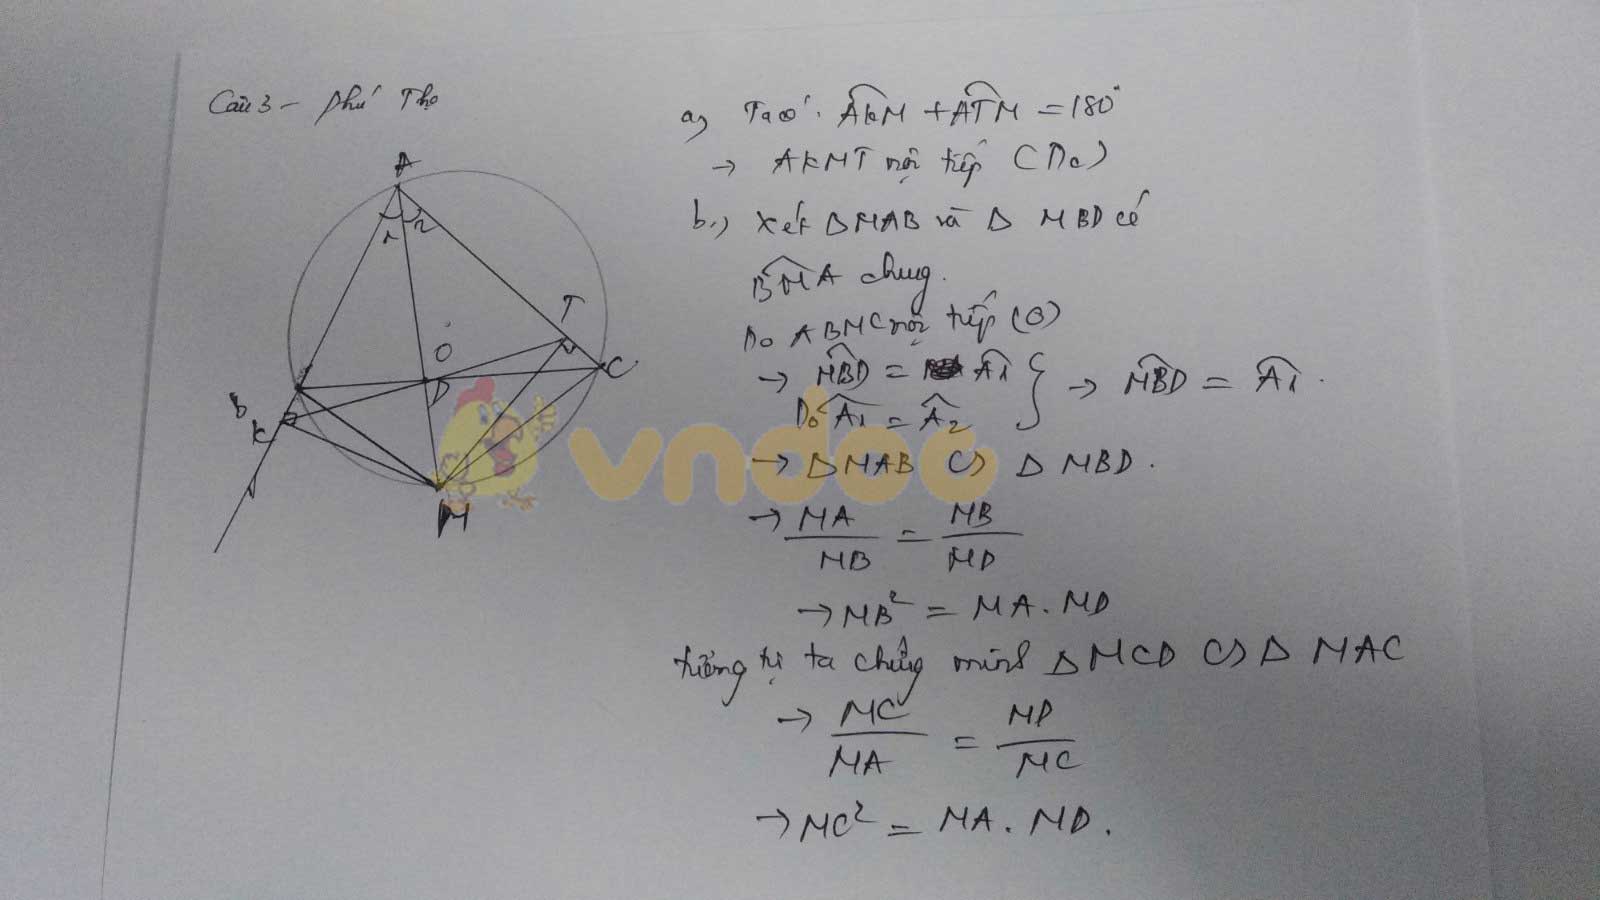 Câu 3 - Phú Thọ
A
1 2
T
O
C
D
B
K
M
vndoc
a, Ta có: AKM + ATM = 180°
→ AKMT nội tiếp (Đpc)
b., Xét Δ MAB và Δ MBD có
BMA chung.
Do ABMC nội tiếp (O)
→ MBD = A1 } → MBD = A1.
Do A1 = A2
→ Δ MAB ∽ Δ MBD.
→ MA/MB = MB/MD
→ MB² = MA.MD
tương tự ta chứng minh Δ MCD ∽ Δ MAC
→ MC/MA = MD/MC
→ MC² = MA.MD.